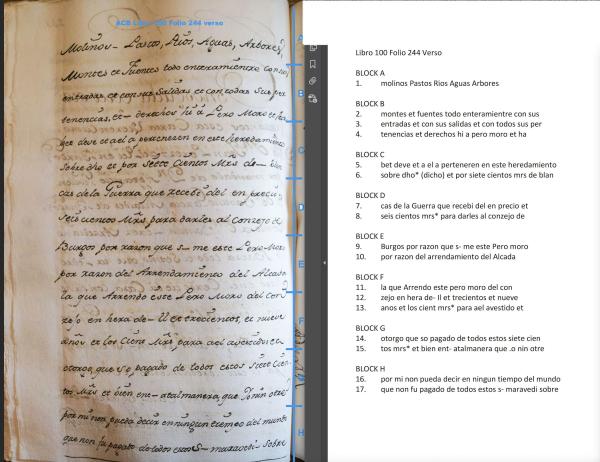 ACB Libro 100 Folio 244 verso
Molinos- Pastos, Rios, Aguas, Arbores,
Montes et Fuentes todo enteramientre con sus
entradas, et con sus Salidas et con todas Sus per
tenencias, et- derechos hi á Pero Moro et ha
ver deve et ael a perteneren en este heredamiento
Sobredho et por Siete Cientos Mrs de- blan
cas de la Guerra que recebí del en precio et
seis cientos Mrs para darles al Conzejo de
Burgos por razon que s- me este Pero Moro
por razon del Arrendamiento del Alcada
la que Arrendo este Pero Moro del Con
zejo en hera de- II et trecientos, et nueve
años et los Cient Mrs para ael avestido et
otorgo, que so pagado de todos estos Siete Cien
tos Mrs et bien ent- atalmanera, que nin otre
por mi non pueda decir en ningun tiempo del mundo
que non fu pagado de todos estos S- maravedi- sobre
A
B
C
D
E
F
G
H
Libro 100 Folio 244 Verso
BLOCK A
1. molinos Pastos Rios Aguas Arbores
BLOCK B
2. montes et fuentes todo enteramientre con sus
3. entradas et con sus salidas et con todos sus per
4. tenencias et derechos hi a pero moro et ha
BLOCK C
5. bet deve et a el a perteneren en este heredamiento
6. sobre dho* (dicho) et por siete cientos mrs de blan
BLOCK D
7. cas de la Guerra que recebi del en precio et
8. seis cientos mrs* para darles al conzejo de
BLOCK E
9. Burgos por razon que s- me este Pero moro
10. por razon del arrendamiento del Alcada
BLOCK F
11. la que Arrendo este pero moro del con
12. zejo en hera de- II et trecientos et nueve
13. anos et los cient mrs* para ael avestido et
BLOCK G
14. otorgo que so pagado de todos estos siete cien
15. tos mrs* et bien ent- atalmanera que .o nin otre
BLOCK H
16. por mi non pueda decir en ningun tiempo del mundo
17. que non fu pagado de todos estos s- maravedi sobre